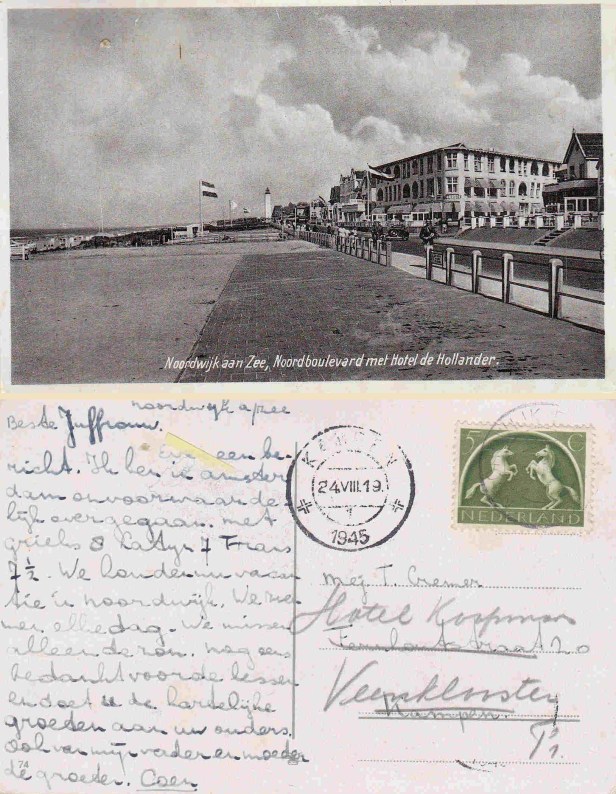 Noordwijk aan Zee, Noordboulevard met Hotel de Hollander.
Noordwijk a zee
Beste Juffrouw.
Even een be-
richt. Ik ben in amster
dam onvoorwaarde
lijk overgegaan. met
grieks 8 Latijn 7 Frans
7½. We houden nu vacan
tie in noordwijk. We zwe
men elke dag. We missen
alleen de zon. nog eens
bedankt voor de lessen
en doet u de hartelijke
groeten aan uw ouders.
Ook van mijn vader en moeder
de groeten. Coen
74
KAMPEN
24.VIII.19
1945
5 C
NEDERLAND
Mej T. Cremer
Hotel Koopmans
20
Veenklooster
Kampen.
Fr.